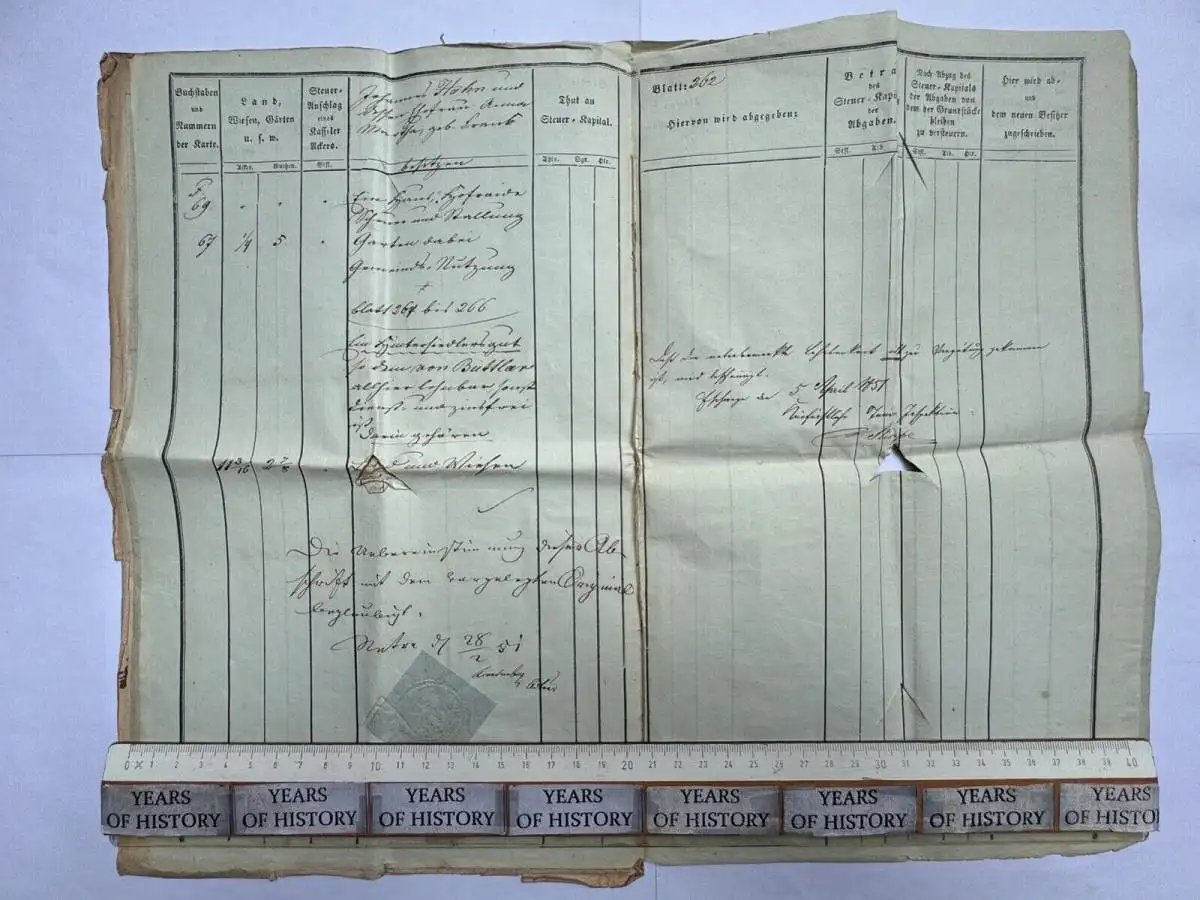 Buchstaben
und
Nummern
der Karte.
Land,
Wiesen, Gärten
u. s. w.
Acker. Ruthen.
Steuer-
Anschlag
eines
Kasseler
Ackers.
Johannes Hohn und
dessen Ehefrau Anna
Martha, geb. Frank
besitzen
Thut an
Steuer-Kapital.
Thlr. Sgr. Hlr.
F.
69. " " " Ein Haus, Hofraide
Scheuer und Stallung
67 1/4 5 " Garten dabei
Gemeinds-Nutzung
blatt 264 bis 266
Ein Hintersiedlersgut
so dem von Buttlar
allhier lehnbar sonst
dienst- und zinsfrei
ist
Darin gehören
11 3/16 2 7/8 " und Wiesen
Die Uebereinstimmung dieser Ab-
schrift mit dem vorgelegten Original
beglaubigt.
Netra d 28/2 51
Blatt: 262
Hiervon wird abgegeben:
Betra
des
Steuer-Kapi
der
Abgaben.
Noch Abzug des
Steuer-Kapitals
der Abgaben von
dem der Grundstücke
bleiben
zu versteuern.
Hier wird ab-
und
dem neuen Besitzer
zugeschrieben.
ist, wird bescheinigt.
Eschwege den 5 April 1851
0 1 2 3 4 5 6 7 8 9 10 11 12 13 14 15 16 17 18 19 20 21 22 23 24 25 26 27 28 29 30 31 32 33 34 35 36 37 38 39 40
YEARS OF HISTORY YEARS OF HISTORY YEARS OF HISTORY YEARS OF HISTORY YEARS OF HISTORY YEARS OF HISTORY YEARS OF HISTORY YEARS OF HISTO